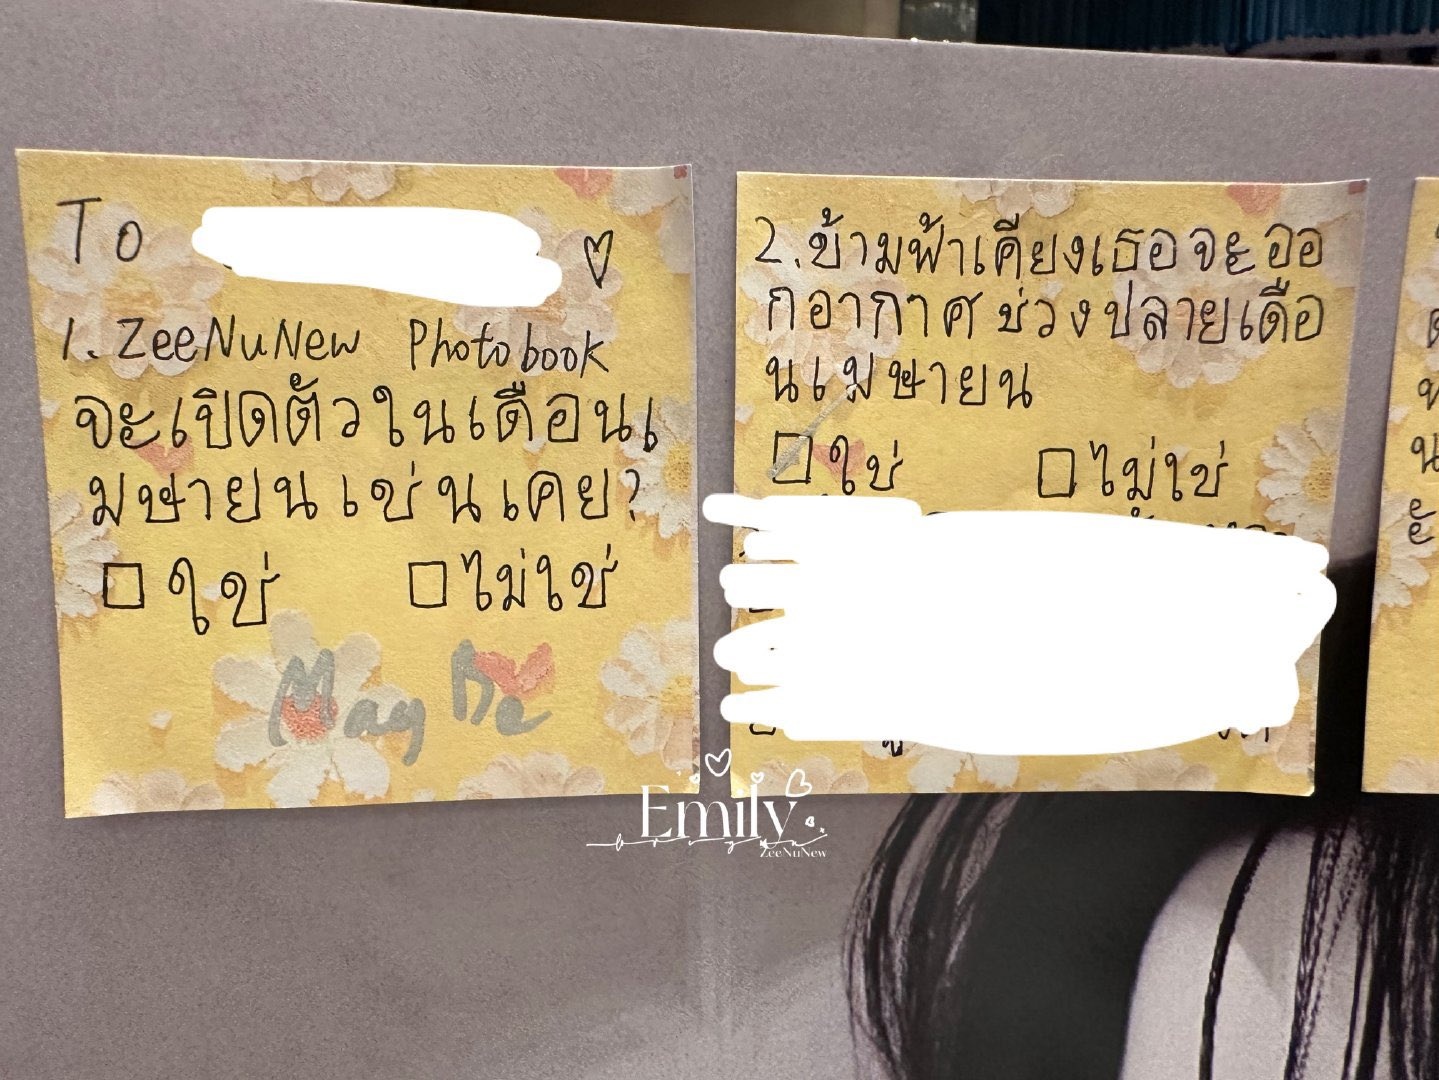 To
1. ZeeNuNew Photobook
จะเปิดตัวในเดือนเ
มษายนเช่นเคย?
□ ใช่ □ ไม่ใช่
May Be
2. ข้ามฟ้าเคียงเธอจะออ
กอากาศช่วงปลายเดือ
นเมษายน
□ ใช่ □ ไม่ใช่
Emily
ZeeNuNew